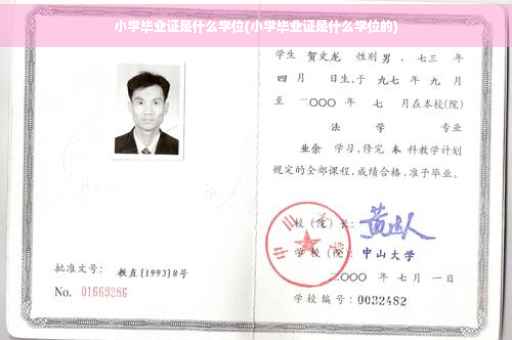 小学毕业证是什么学位(小学毕业证是什么学位的)
学生 贺文龙 性别 男 、七三 年
四 月 日生,于 九七 年 九 月
至 二〇〇〇 年 七 月在本校(院)
法 学 专业
业余 学习,修完 本 科教学计划
规定的全部课程,成绩合格,准予毕业。
校(院)长:
学校(院): 中山大学
二〇〇〇 年 七 月 一 日
学校编号: 0032482
批准文号: 教直[1993]8号
No. 01663286